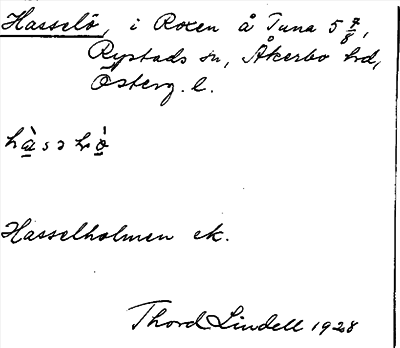 Hasselö, i Roxen å Tuna 5 7/8,
Rystads sn, Åkerbo hd,
Österg. l.
Hasselholmen ek.
Thord Lindell 1928